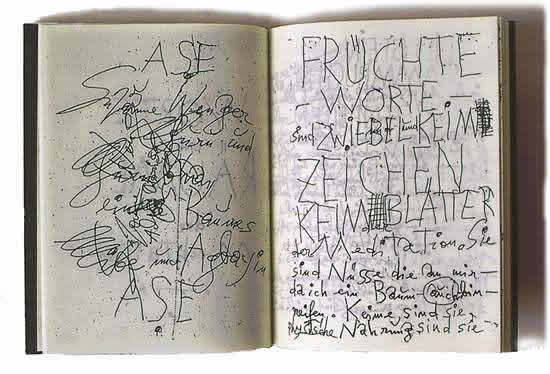 ASE
Susanne Wenger
und
eines Baumes
und
ASE
FRÜCHTE
- WORTE -
sind ZWIEBEL und KEIM
ZEICHEN
KEIM BLÄTTER
der Meditation. Sie
sind Nüsse die an mir -
da ich ein Baum auch bin -
reifen. Keime sind sie,
Nahrung sind sie -